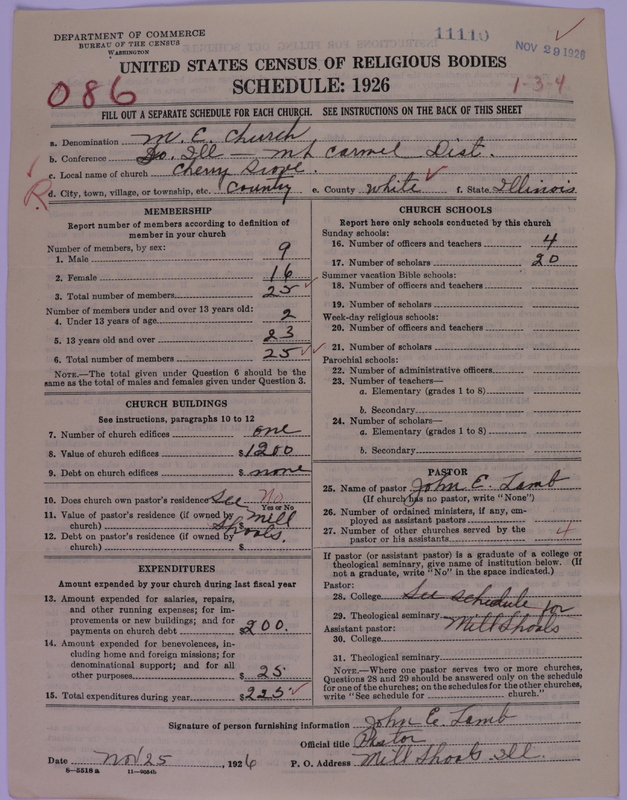 DEPARTMENT OF COMMERCE
BUREAU OF THE CENSUS
WASHINGTON
11110
NOV 29 1926
UNITED STATES CENSUS OF RELIGIOUS BODIES
SCHEDULE: 1926
086
1-3-4
FILL OUT A SEPARATE SCHEDULE FOR EACH CHURCH. SEE INSTRUCTIONS ON THE BACK OF THIS SHEET
a. Denomination M. E. Church
b. Conference So. Ill - Mt Carmel Dist.
c. Local name of church Cherry Grove.
d. City, town, village, or township, etc. County e. County White f. State Illinois
MEMBERSHIP
Report number of members according to definition of
member in your church
Number of members, by sex:
1. Male 9
2. Female 16
3. Total number of members 25
Number of members under and over 13 years old:
4. Under 13 years of age 2
5. 13 years old and over 23
6. Total number of members 25
NOTE.—The total given under Question 6 should be the
same as the total of males and females given under Question 3.
CHURCH BUILDINGS
See instructions, paragraphs 10 to 12
7. Number of church edifices one
8. Value of church edifices $1200
9. Debt on church edifices $ none
10. Does church own pastor's residence See No
Yes or No
11. Value of pastor's residence (if owned by
church) $ Mill
12. Debt on pastor's residence (if owned by Shoals.
church) $
EXPENDITURES
Amount expended by your church during last fiscal year
13. Amount expended for salaries, repairs,
and other running expenses; for im-
provements or new buildings; and for
payments on church debt $200.
14. Amount expended for benevolences, in-
cluding home and foreign missions; for
denominational support; and for all
other purposes $ 25
15. Total expenditures during year $ 225
CHURCH SCHOOLS
Report here only schools conducted by this church
Sunday schools:
16. Number of officers and teachers 4
17. Number of scholars 20
Summer vacation Bible schools:
18. Number of officers and teachers
19. Number of scholars
Week-day religious schools:
20. Number of officers and teachers
21. Number of scholars
Parochial schools:
22. Number of administrative officers
23. Number of teachers—
a. Elementary (grades 1 to 8)
b. Secondary
24. Number of scholars—
a. Elementary (grades 1 to 8)
b. Secondary
PASTOR
25. Name of pastor John E. Lamb
(If church has no pastor, write "None")
26. Number of ordained ministers, if any, em-
ployed as assistant pastors
27. Number of other churches served by the
pastor or his assistants 4
If pastor (or assistant pastor) is a graduate of a college or
theological seminary, give name of institution below. (If
not a graduate, write "No" in the space indicated.)
Pastor:
28. College See schedule for
29. Theological seminary
Assistant pastor: Mill Shoals
30. College
31. Theological seminary
NOTE.—Where one pastor serves two or more churches,
Questions 28 and 29 should be answered only on the schedule
for one of the churches; on the schedules for the other churches,
write "See schedule for church."
Signature of person furnishing information John E. Lamb
Official title Pastor
Date Nov 25, 1926 P. O. Address Mill Shoals Ill.
8—5518 a 11—9054b